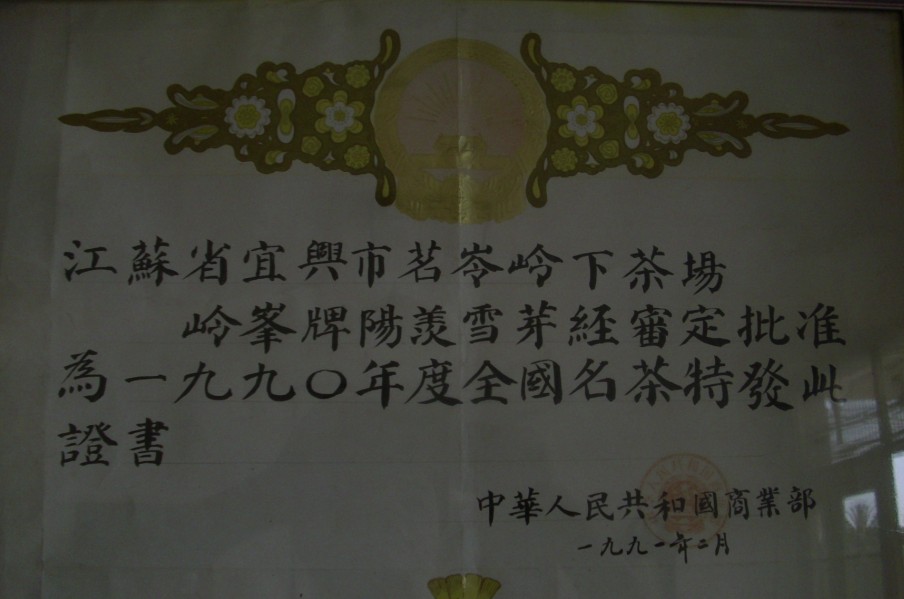 江蘇省宜興市茗岺岭下茶場
岭峯牌陽羨雪芽経審定批准
為一九九〇年度全國名茶特發此
證書
中華人民共和國商業部
一九九一年二月